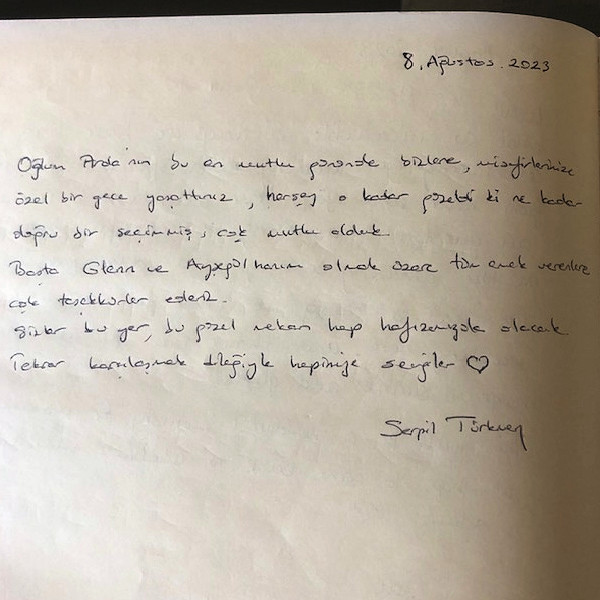 8. Ağustos. 2023
Oğlum Arda'nın bu en mutlu gününde bizlere, misafirlerimize
özel bir gece yaşattınız, herşey o kadar güzeldi ki ne kadar
doğru bir seçimmiş, çok mutlu olduk.
Başta Glenn ve Ayşegül hanım olmak üzere tüm emek verenlere
çok teşekkürler ederiz.
Sizler bu yer, bu güzel mekan hep hafızamızda olacak
Tekrar karşılaşmak dileğiyle hepinize sevgiler ♡
Serpil Türkmen